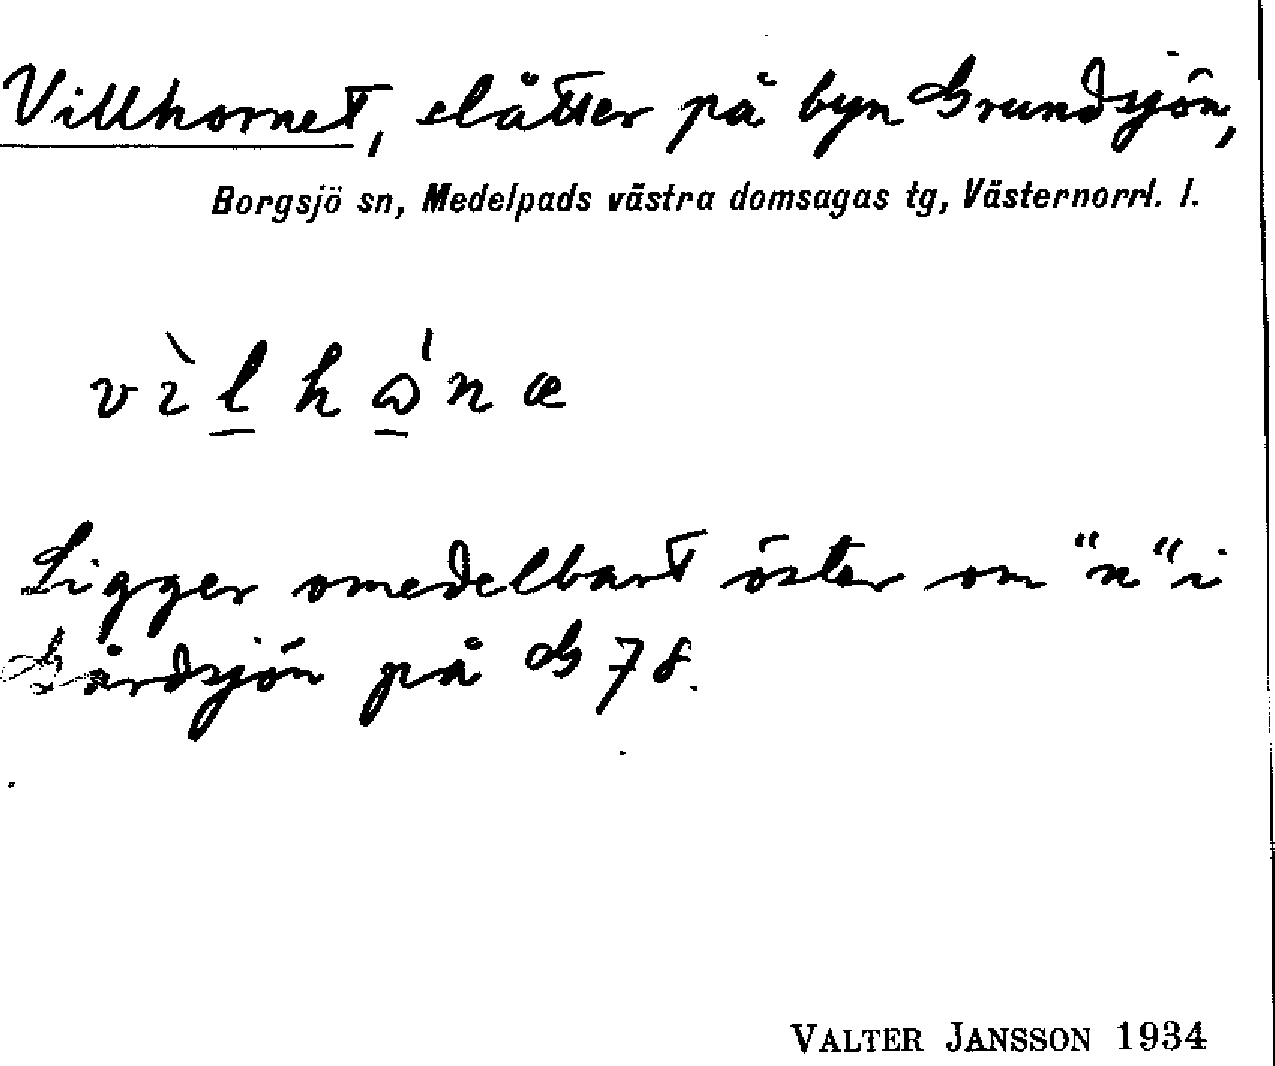 Villhornet, slåtter på byn Grundsjön,
Borgsjö sn, Medelpads västra domsagas tg, Västernorrl. l.
Ligger omedelbart öster om "n" i
Gårdsjön på G 78.
VALTER JANSSON 1934